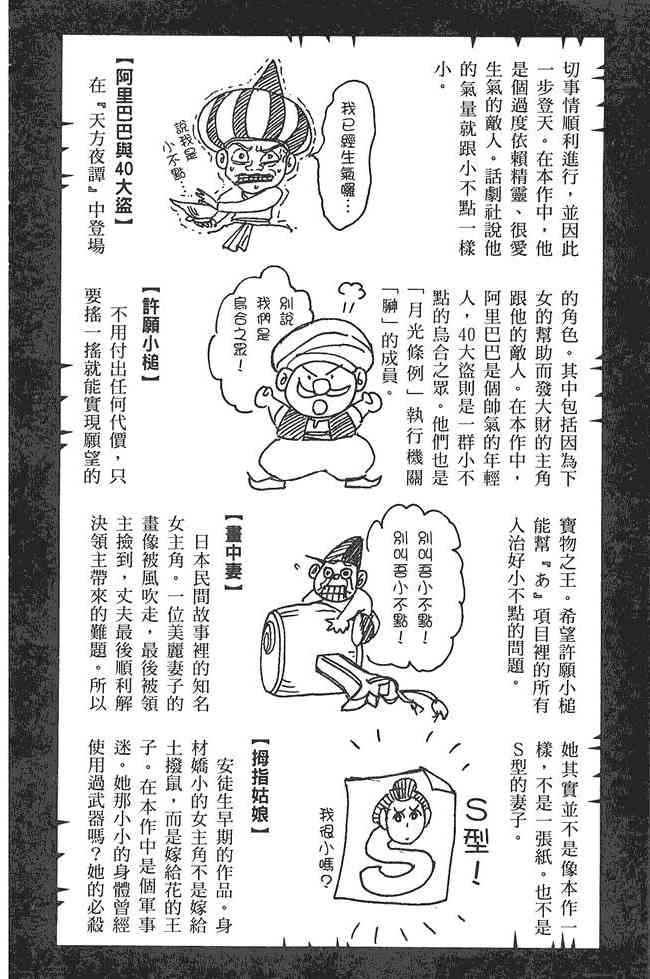 切事情順利進行，並因此
一步登天。在本作中，他
是個過度依賴精靈、很愛
生氣的敵人。話劇社說他
的氣量就跟小不點一樣
小。
我已經生氣囉…
說我是
小不點…
【阿里巴巴與40大盜】
在『天方夜譚』中登場
的角色。其中包括因為下
女的幫助而發大財的主角
跟他的敵人。在本作中，
阿里巴巴是個帥氣的年輕
人，40大盜則是一群小不
點的烏合之眾。他們也是
「月光條例」執行機關
「𧗠」的成員。
別說
我們是
烏合之眾！
【許願小槌】
不用付出任何代價，只
要搖一搖就能實現願望的
寶物之王。希望許願小槌
能幫『あ』項目裡的所有
人治好小不點的問題。
別叫吾小不點！
別叫吾小不點！
【畫中妻】
日本民間故事裡的知名
女主角。一位美麗妻子的
畫像被風吹走，最後被領
主撿到，丈夫最後順利解
決領主帶來的難題。所以
她其實並不是像本作一
樣，不是一張紙。也不是
S型的妻子。
S型！
S
我很小嗎？
【拇指姑娘】
安徒生早期的作品。身
材嬌小的女主角不是嫁給
土撥鼠，而是嫁給花的王
子。在本作中是個軍事
迷。她那小小的身體曾經
使用過武器嗎？她的必殺